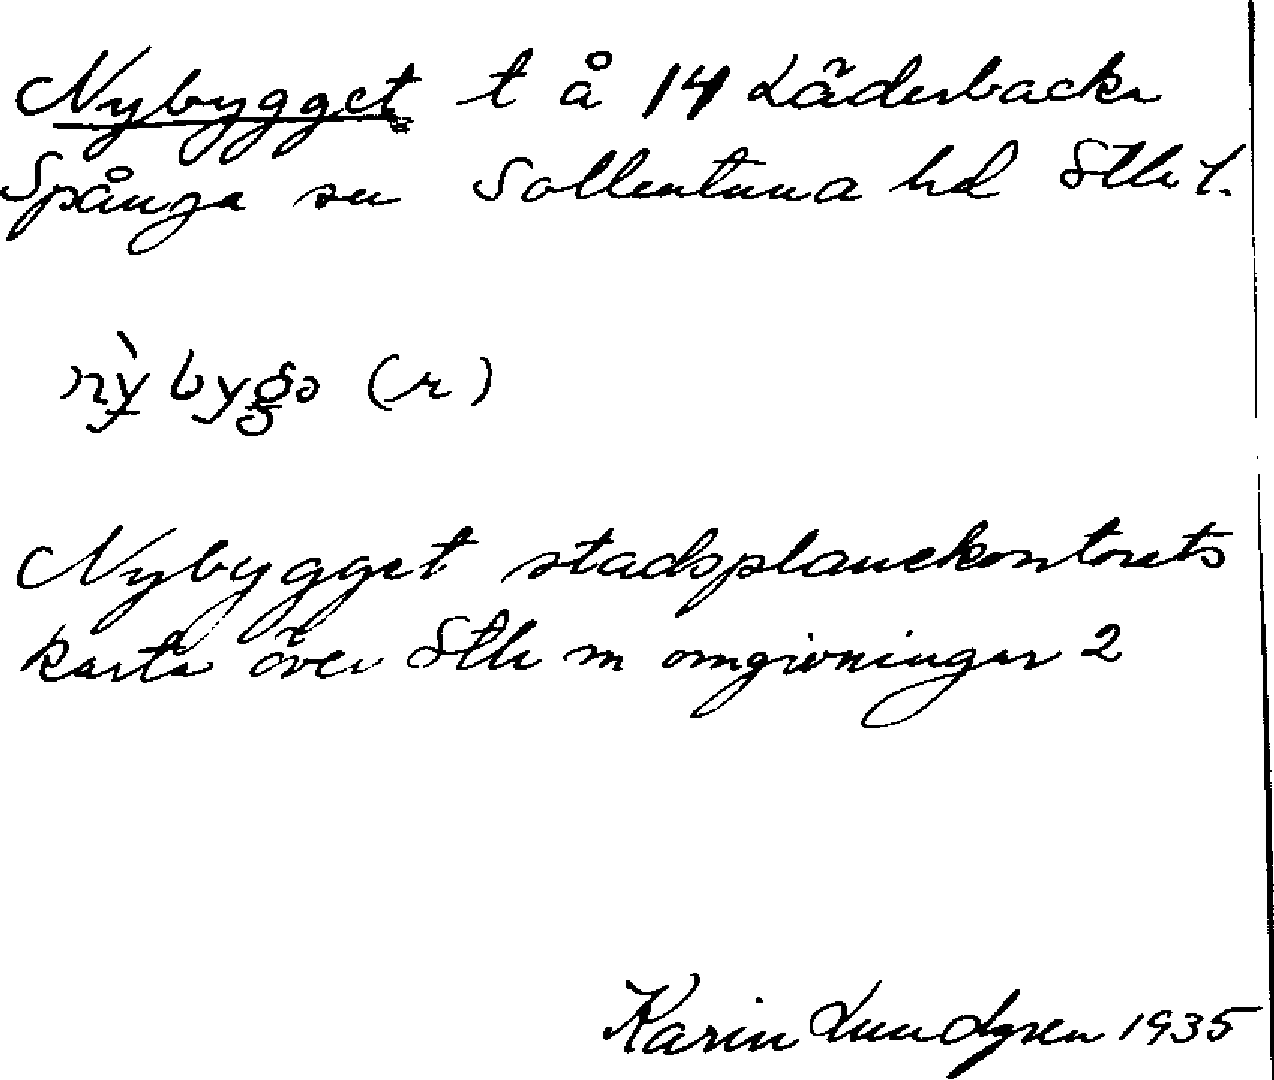 Nybygget t å 14 Läderbacka
Spånga sn Sollentuna hd Sthl.
nỳbygə (r)
Nybygget stadsplanekontorets
karta över Sthlm omgivningar 2
Karin Lundgren 1935